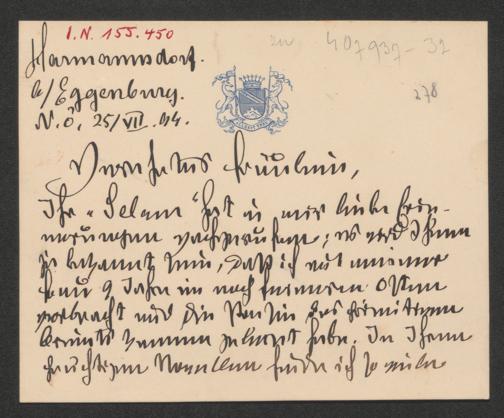 I.N. 155.450
407937-32
278
Harmannsdorf.
b/Eggenburg.
N.Ö. 25/VII. 94.
Verehrtes Fräulein,
Ihr „Selam" hat in mir liebe Erin-
nerungen wachgerufen; es wird Ihnen
ja bekannt sein, daß ich mit meiner
Frau 9 Jahre im noch ferneren Osten
verbracht und die Poesie des
bereits kennen gelernt habe. In Ihren
Novellen finde ich so viele